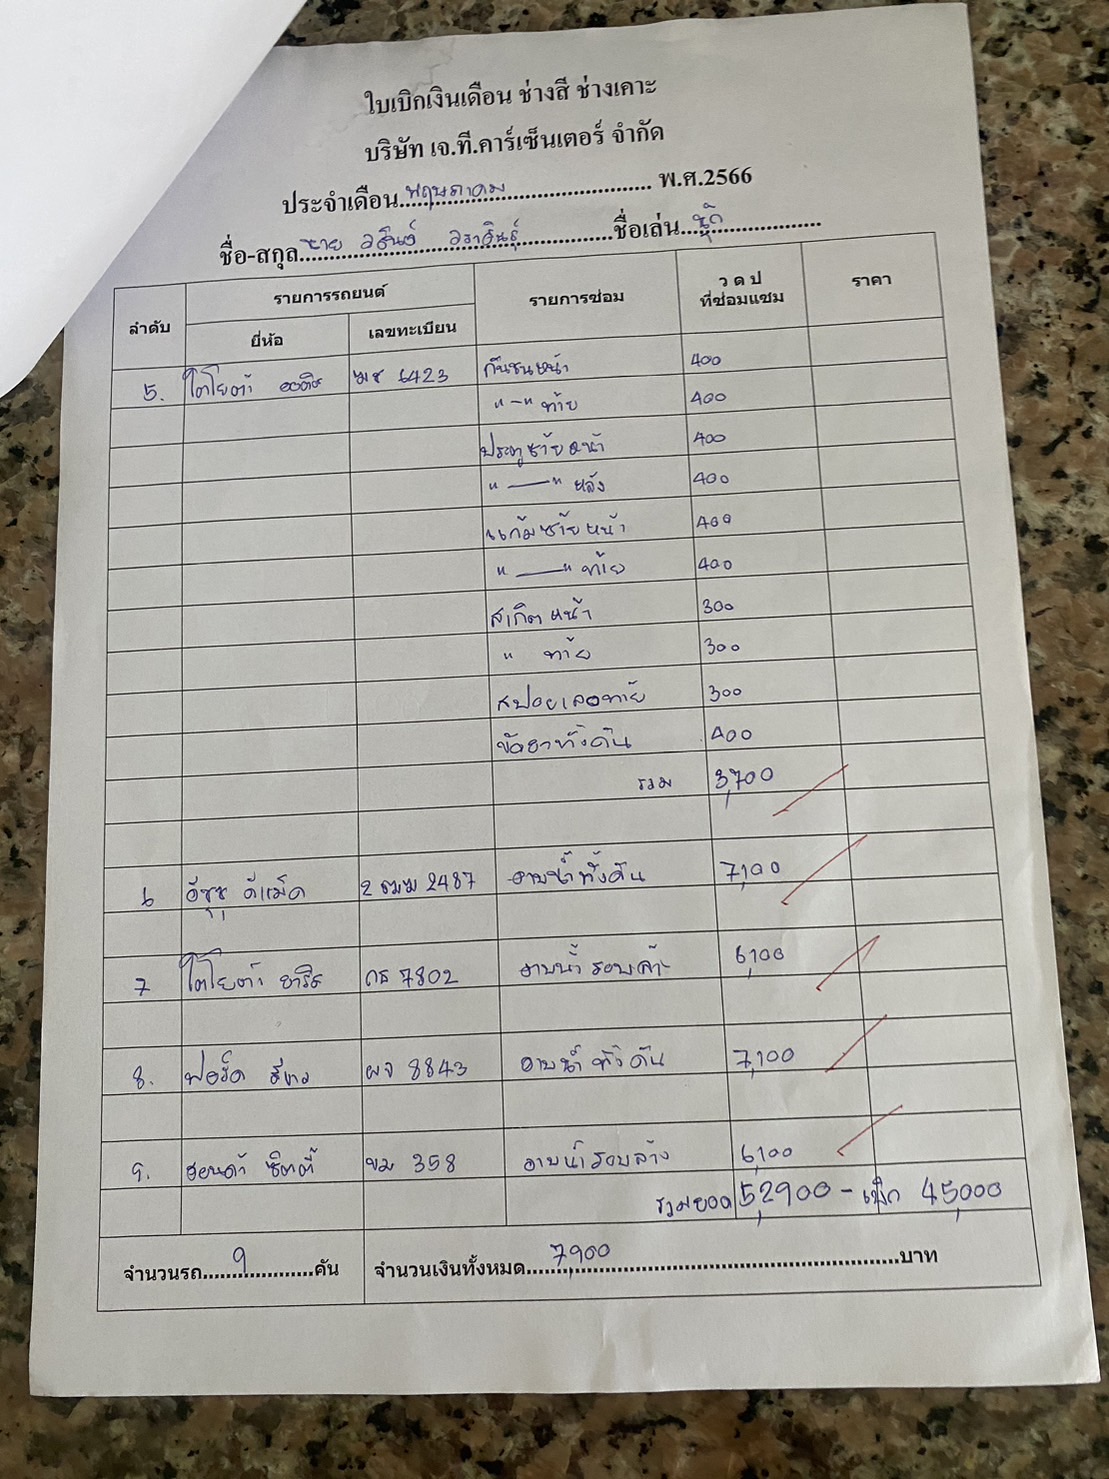 ใบเบิกเงินเดือน ช่างสี ช่างเคาะ
บริษัท เจ.ที.คาร์เซ็นเตอร์ จำกัด
ประจำเดือน พฤษภาคม พ.ศ.2566
ชื่อ-สกุล นาย ชื่อเล่น
ลำดับ รายการรถยนต์ รายการซ่อม ว ด ป ที่ซ่อมแซม ราคา
ยี่ห้อ เลขทะเบียน
5. โตโยต้า 6423 กันชนหน้า 400
" — " ท้าย 400
ประตูซ้ายหน้า 400
" — " หลัง 400
แก้มซ้ายหน้า 400
" — " ท้าย 400
สเกิตหน้า 300
" ท้าย 300
สปอยเลอท้าย 300
ขัดยาทั้งคัน 400
รวม 3,700
6 อีซูซุ ดีแม็ค 2 ฒฆ 2487 อาบน้ำทั้งคัน 7,100
7 โตโยต้า ยาริส กธ 7802 อาบน้ำรอบล่าง 6,100
8. ฟอร์ด ผจ 8843 อาบน้ำทั้งคัน 7,100
9. ฮอนด้า ซิตตี้ ขม 358 อาบน้ำรอบล่าง 6,100
รวมยอด 52,900 - เบิก 45,000
จำนวนรถ 9 คัน จำนวนเงินทั้งหมด 7,900 บาท